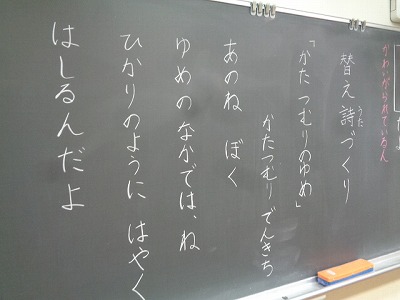 かわいがられているん
替え詩づくり
うた
「かたつむりのゆめ」
かたつむり でんきち
あのね ぼく
ゆめのなかでは、ね
ひかりのように はやく
はしるんだよ